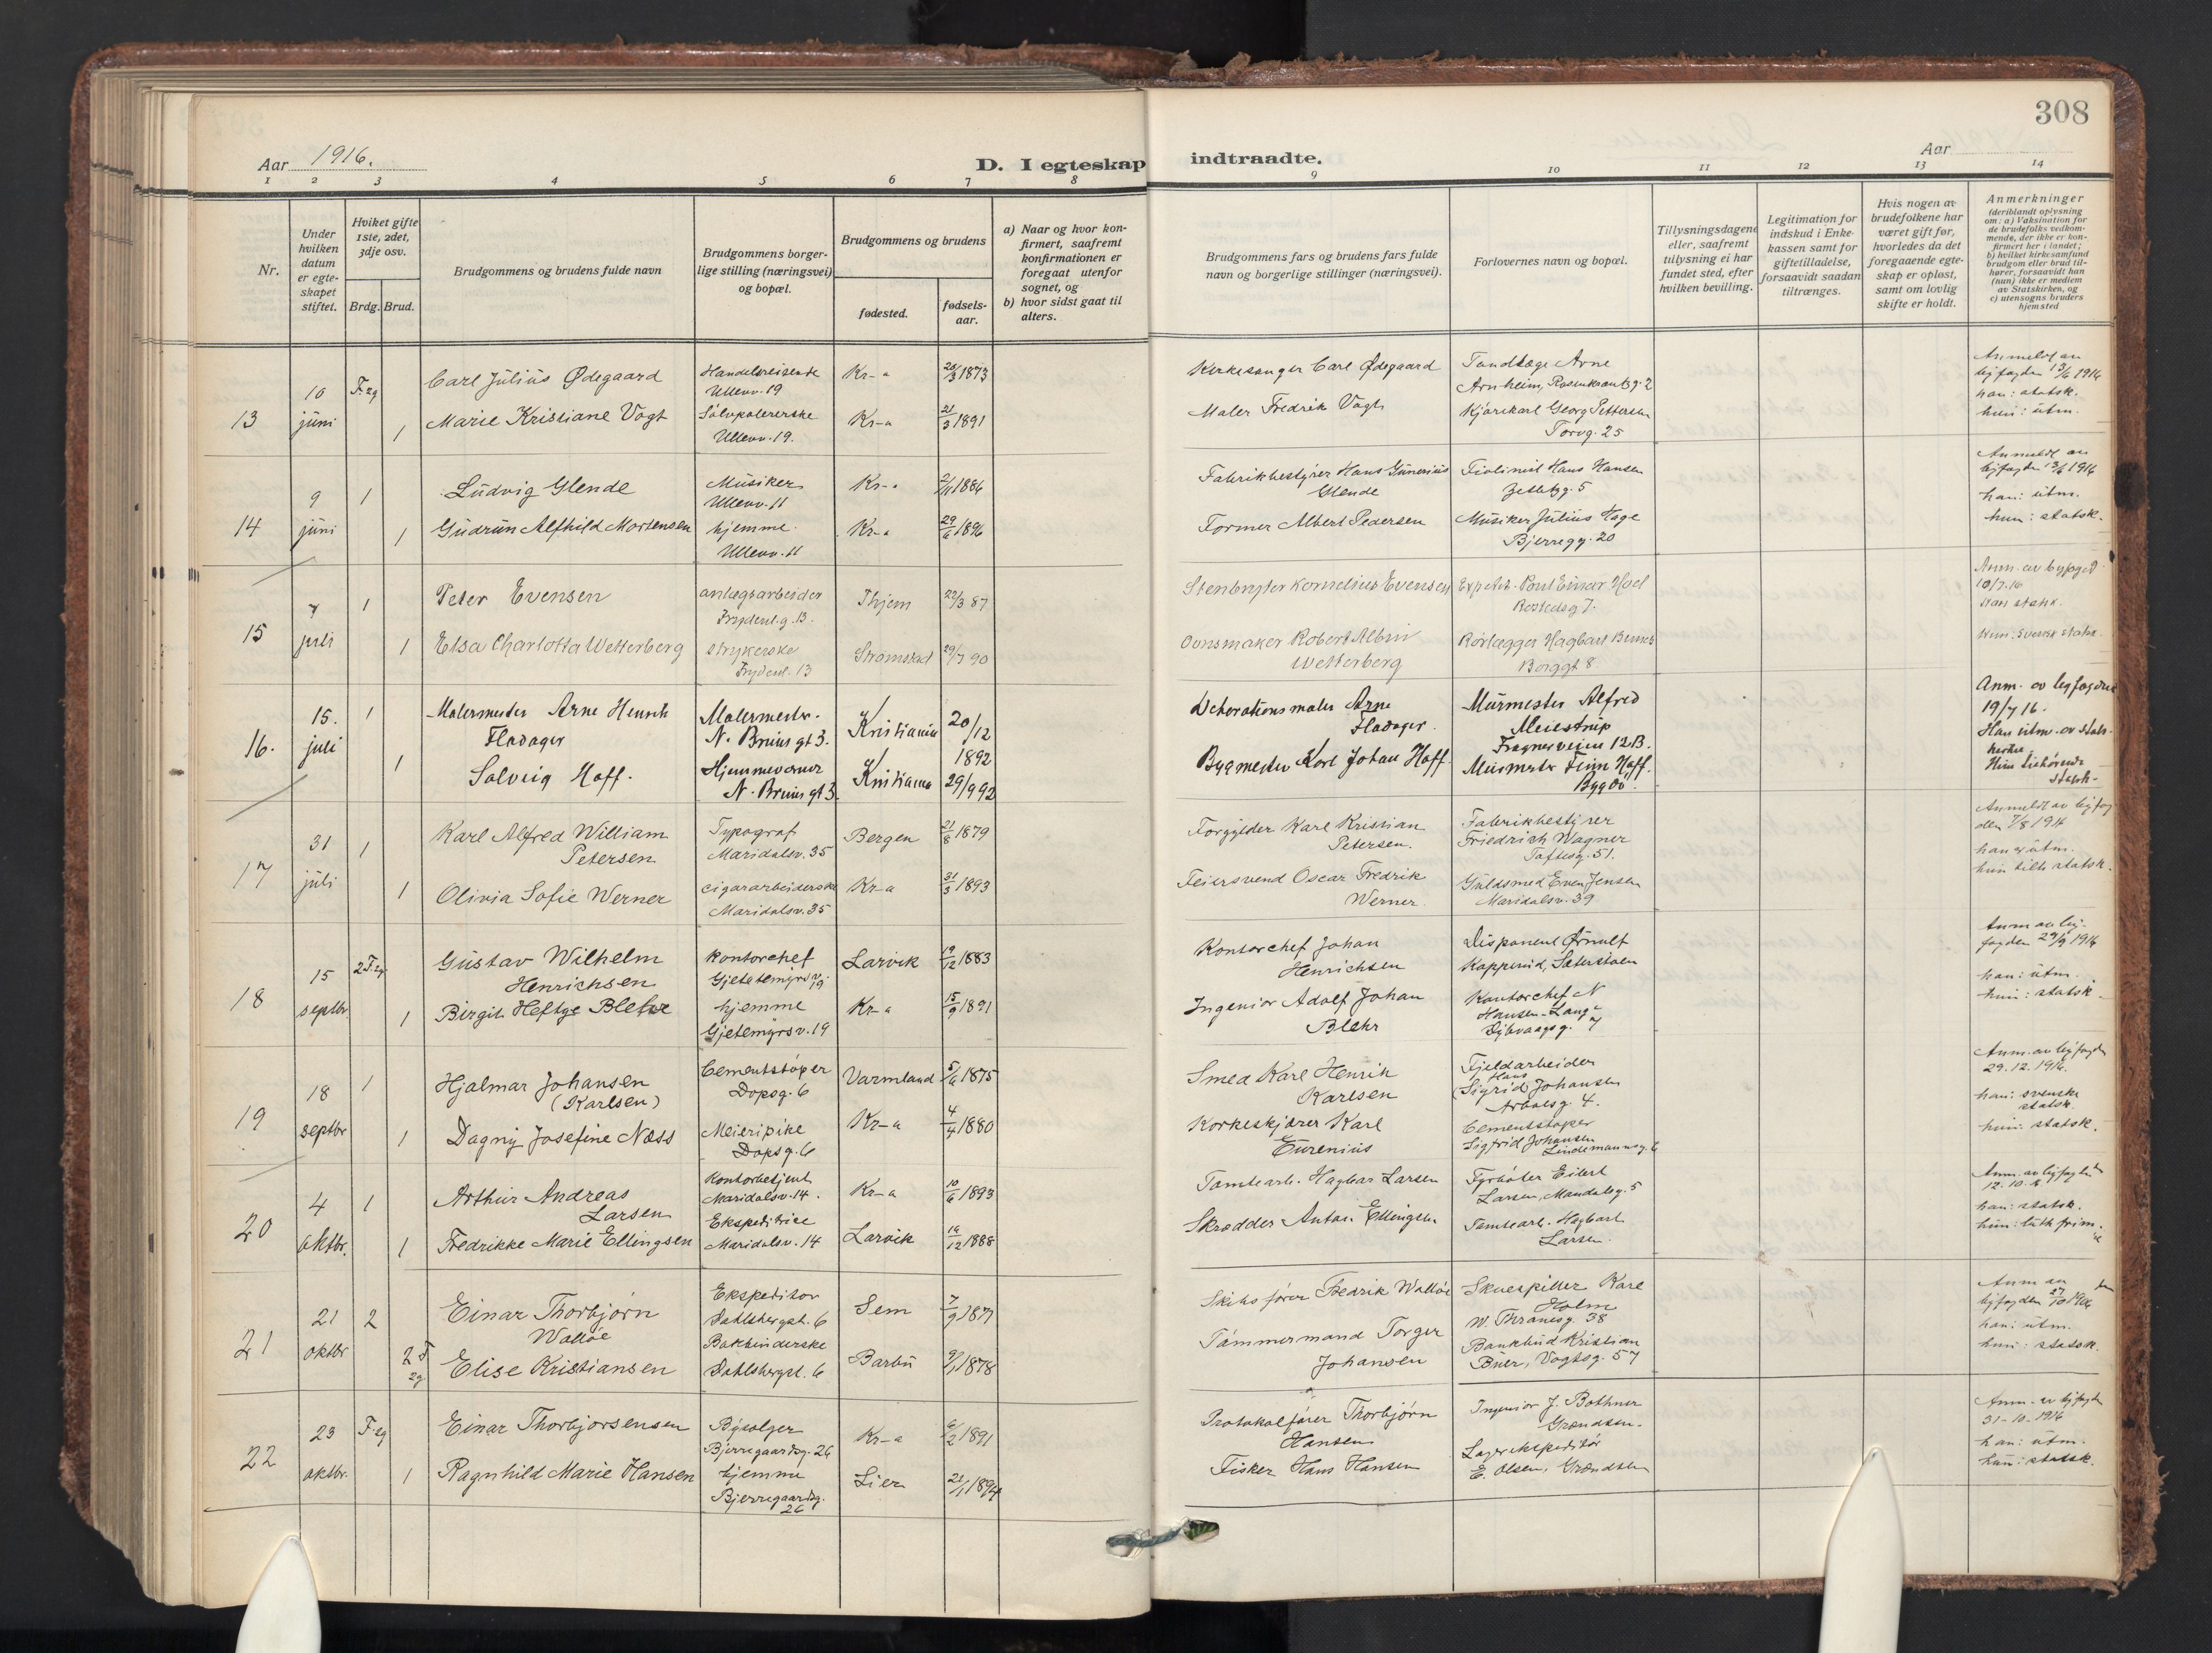 308
Aar 1916.
D. I egteskap indtraadte.
Aar
1 2 3 4 5 6 7 8 9 10 11 12 13 14
Nr.
Under hvilken datum er egte-skapet stiftet.
Hvilket gifte 1ste, 2det, 3dje osv.
Brdg. Brud.
Brudgommens og brudens fulde navn
Brudgommens borger-lige stilling (næringsvei) og bopæl.
Brudgommens og brudens
fødested.
fødsels-aar.
a) Naar og hvor kon-firmert, saafremt konfirmationen er foregaat utenfor sognet, og
b) hvor sidst gaat til alters.
Brudgommens fars og brudens fars fulde navn og borgerlige stillinger (næringsvei).
Forlovernes navn og bopæl.
Tillysningsdagene eller, saafremt tillysning ei har fundet sted, efter hvilken bevilling.
Legitimation for indskud i Enke-kassen samt for giftetilladelse, forsaavidt saadan tiltrænges.
Hvis nogen av brudefolkene har været gift før, hvorledes da det foregaaende egte-skap er opløst, samt om lovlig skifte er holdt.
Anmerkninger (deriblandt oplysning om: a) Vaksination for de brudefolks vedkom-mende, der ikke er kon-firmert her i landet; b) hvilket kirkesamfund brudgom eller brud til-hører, forsaavidt han (hun) ikke er medlem av Statskirken, og c) utensogns bruders hjemsted
13
10 juni
F. eg
1
Carl Julius Ødegaard
Marie Kristiane Vogt
Handelsreisende
Ullevv. 19
Sølvpolererske
Ullevv. 19.
Kr-a 20/3 1873
Kr-a 21/3 1891
Kirkesanger Carl Ødegaard
Maler Fredrik Vogt
Tandlæge Arne
Arnheim, Rosenkrantzg. 2
Kjørekarl Georg Pettersen
Torvg. 25
Anmeldt av
byfogden 13/6 1916
han: statsk.
hun: utm.
14
9 juni
1
1
Ludvig Glende
Gudrun Alfhild Mortensen
Musiker
Ullevv. 11
hjemme
Ullevv. 11
Kr-a 2/11 1886
Kr-a 29/6 1896
Fabrikbestyrer Hans Gunerius
Glende
Former Albert Pedersen
Fiolinist Hans Hansen
Zetlitzg. 5
Musiker Julius Hage
Bjerregg. 20
Anmeldt av
byfogden 13/6 1916
han: utm.
hun: statsk.
15
7 juli
1
1
Peter Evensen
Elsa Charlotta Wetterberg
anlægsarbeider
Frydenl.g. 13.
strykerske
Frydenl. 13
Thjem 22/3 87
Strømstad 29/7 90
Stenbryter Kornelius Evensen
Ovnsmaker Robert Albin
Wetterberg
Poul Einar Hoel
Rørlægger Hagbart
Borggt 8
Anm. av byfogd
10/7.16
Han statsk.
Hun: Svensk statsk.
16.
15. juli
1
1
Malermester Arne Hensch
Fladager
Solveig Hoff.
Malermester.
N. Bruns gt 3.
Hjemmeværende
N. Bruns gt 3.
Kristiania 20/12 1892
Kristiania 29/9 92
Dekorationsmaler Arne
Fladager.
Bygmester Karl Johan Hoff.
Murmester Alfred
Meiestrup
Frognerveien 12 B.
Murmester Finn Hoff.
Bygdø.
Anm. av byfogden
19/7 16.
Han utm. av stats-
kirke.
Hun tilhørende
statsk.
17
31 juli
1
1
Karl Alfred William
Petersen
Olivia Sofie Werner
Typograf
Maridalsv. 35
cigararbeiderske
Maridalsv. 35
Bergen 21/8 1879
Kr-a 31/3 1893
Forgylder Karl Kristian
Petersen.
Feiersvend Oscar Fredrik
Werner.
Fabrikbestyrer
Friedrich Wagner
Toftesg. 51.
Guldsmed Even Jensen
Maridalsv. 39
Anmeldt av byfog
den 7/8 1916
han er utm.
hun tilh statsk.
18
15 septbr.
2 F. eg
1
Gustav Wilhelm
Henrichsen
Birgit Heftye Blehr
Kontorchef
Gjetemyrsv. 19
hjemme
Gjetemyrsv. 19
Larvik 19/12 1883
Kr-a 15/9 1891
Kontorchef Johan
Henrichsen
Ingeniør Adolf Johan
Blehr
Disponent Ørnulf
Kopperud, Sæterstøen
Kontorchef N
Hansen-Lange
Dybvaagsg. 7
Anm av by-
fogden 29/9 1916
han: utm.
hun: statsk.
19
18 septbr
1
1
Hjalmar Johansen
(Karlsen)
Dagny Josefine Næss
Cementstøper
Dopsg. 6
Meieripike
Dopsg. 6
Varmland 5/6 1875
Kr-a 4/4 1880
Smed Karl Henrik
Karlsen
Korkeskjærer Karl
Eurenius
Fjeldarbeider
Hans
(Sigrid Johansen
Arbosg. 4.
Cementstøper
Sigfrid Johansen
Lindemannsg. 6
Anm. av byfogden
29.12.1916.
han: svenske
statsk.
hun: statsk.
20
4 oktbr.
1
1
Arthur Andreas
Larsen
Fredrikke Marie Ellingsen
Kontorbetjent
Maridalsv. 14.
Ekspeditrice
Maridalsv. 14
Kr-a 10/6 1893
Larvik 14/12 1888
Tomtearb. Hagbar Larsen
Skrædder Anton Ellingsen
Fyrbøter Eilert
Larsen, Mandalsg. 5
Tomtearb. Hagbart
Larsen.
Anm. av byfogden
12.10.16
han: statsk.
hun: luth frim.
21
21 oktbr
2
2 F eg
Einar Thorbjørn
Walløe
Elise Kristiansen
Ekspeditør
Dahlsbergst. 6
Bokbinderske
Dahlsbergst. 6
Sem 7/9 1871
Barbu 9/1 1878
Skibsfører Fredrik Walløe
Tømmermand Torger
Johansen
Skuespiller Karl
Holm
W. Thranesg. 38
Bankbud Kristian
Buer, Vogtsg. 57
Anm av
byfogden 27/10 1916
han: utm.
hun: statsk.
22
23 oktbr.
F. eg
1
Einar Thorbjørsensen
Ragnhild Marie Hansen
Bysælger
Bjerregaardsg. 26
hjemme
Bjerregaardsg.
26
Kr-a 6/2 1891
Lier 21/1 1894
Protokolfører Thorbjørn
Hansen
Fisker Hans Hansen
Ingeniør J. Bothner
Grændsen.
Lagerekspeditør
E. Olsen, Grændsen
Anm. av byfogden
31-10-1916
han: utm.
hun: statsk.